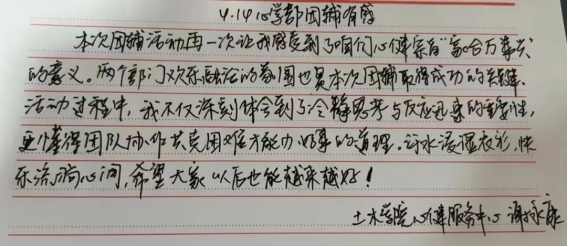 4.14心学部团辅有感
本次团辅活动再一次让我感受到了咱们心健家有“家和万事兴”
的意义。两个部门欢乐融洽的氛围也是本次团辅取得成功的关键。
活动过程中，我不仅深刻体会到了冷静思考与反应迅速的重要性，
更懂得团队协作共克困难才能办好事的道理。汗水浸湿衣衫，快
乐流淌心间，希望大家以后也能越来越好！
土木学院心健服务中心 谢永康